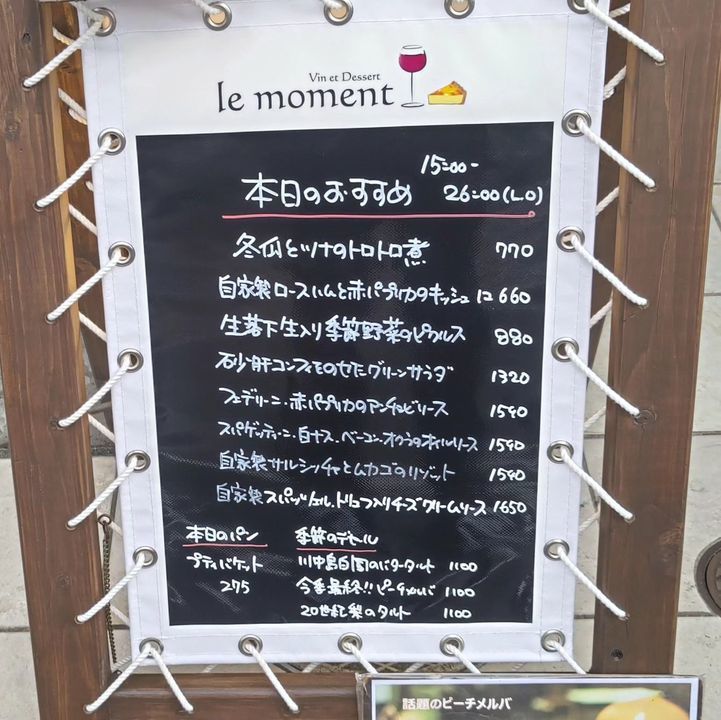 Vin et Dessert
le moment
15:00-
本日のおすすめ 26:00(L.O)
冬瓜とツナのトロトロ煮 770
自家製ロースハムと赤パプリカのキッシュ 1P 660
生落下生入り季節野菜のピクルス 880
砂肝コンフィをのせたグリーンサラダ 1320
フェデリーニ・赤パプリカのアンチョビソース 1540
スパゲッティーニ・白ナス・ベーコン・オクラのオイルソース 1540
自家製サルシッチャとムカゴのリゾット 1540
自家製スパッツェル・トリュフ入りチーズクリームソース 1650
本日のパン
プティバゲット
275
季節のデセール
川中島白桃のバタータルト 1100
今季最終!!ピーチメルバ 1100
20世紀梨のタルト 1100
話題のピーチメルバ